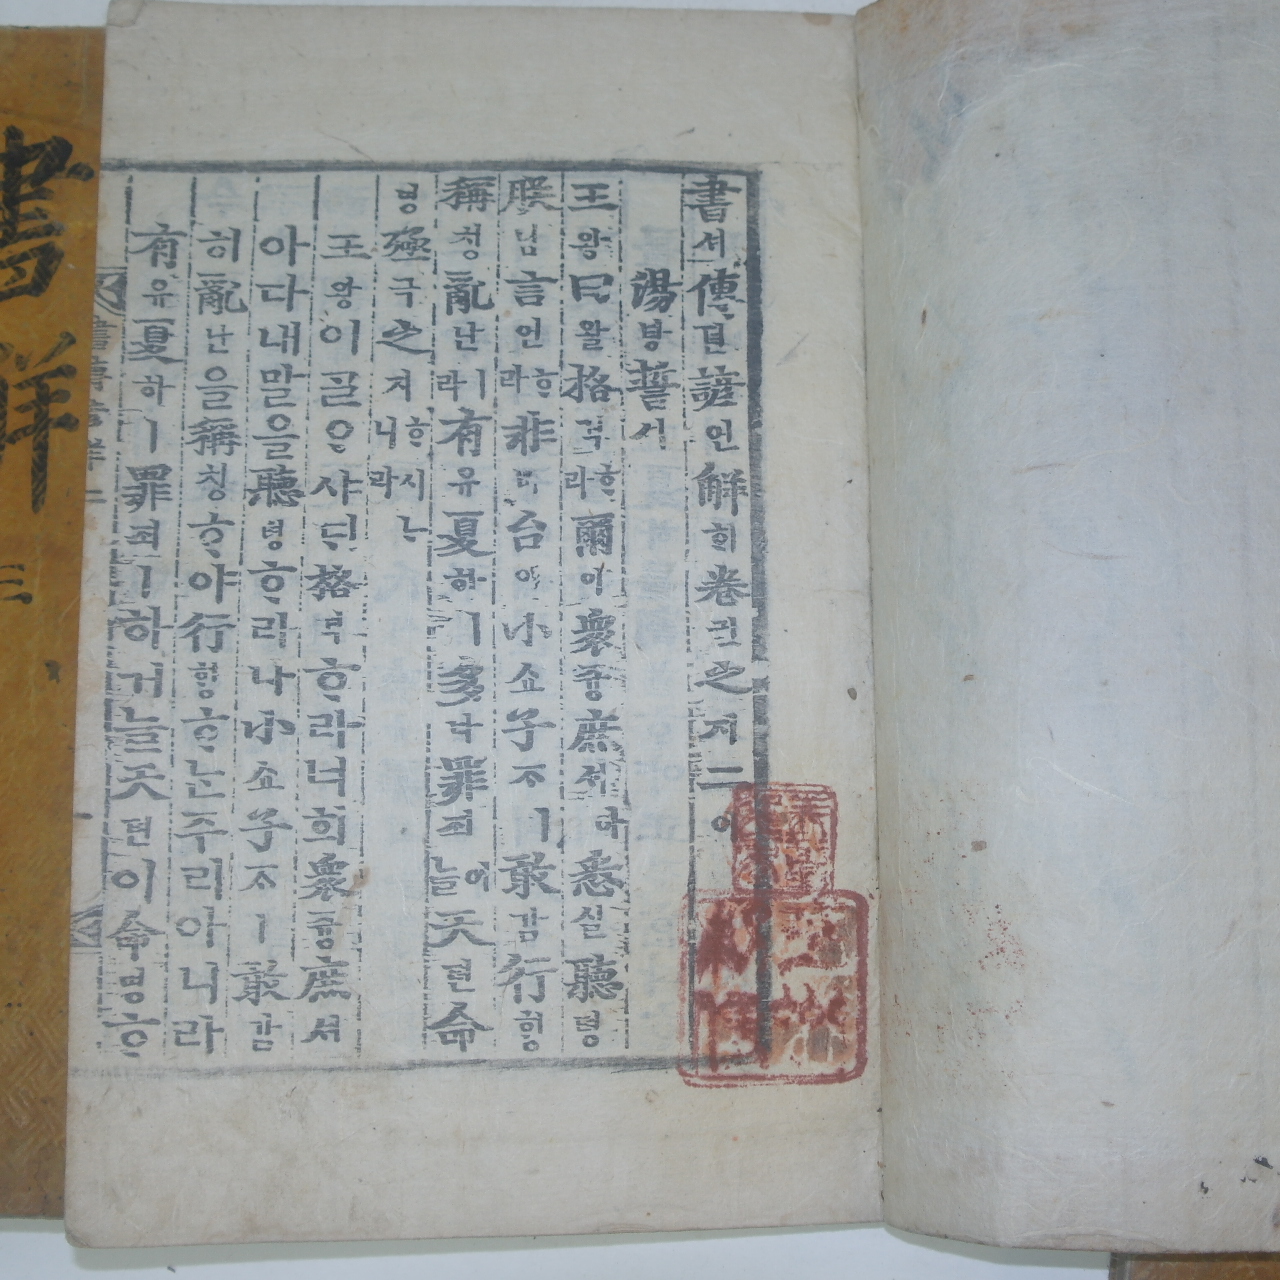 書셔傳뎐諺언解ᄒᆡ卷권之지二이
湯탕誓셔
王왕曰왈格격ᄒᆞ라爾이衆즁庶셔아悉실聽텽
朕딤言언ᄒᆞ라非비台이小쇼子ᄌᆞㅣ敢감行ᄒᆡᆼ
稱칭亂난이라有유夏하ㅣ多다罪죄어늘天텬命
명殛극之지ᄒᆞ시ᄂᆞ니라
王왕이ᄀᆞᆯᄋᆞ샤ᄃᆡ格격ᄒᆞ라너희衆즁庶셔
아다내말을聽텽ᄒᆞ라나小쇼子ᄌᆞㅣ敢감
히亂난을稱칭ᄒᆞ야行ᄒᆡᆼᄒᆞᄂᆞᆫ주리아니라
有유夏하ㅣ罪죄ㅣ하거늘天텬이命명ᄒᆞ
書傳諺解 二
書解 三